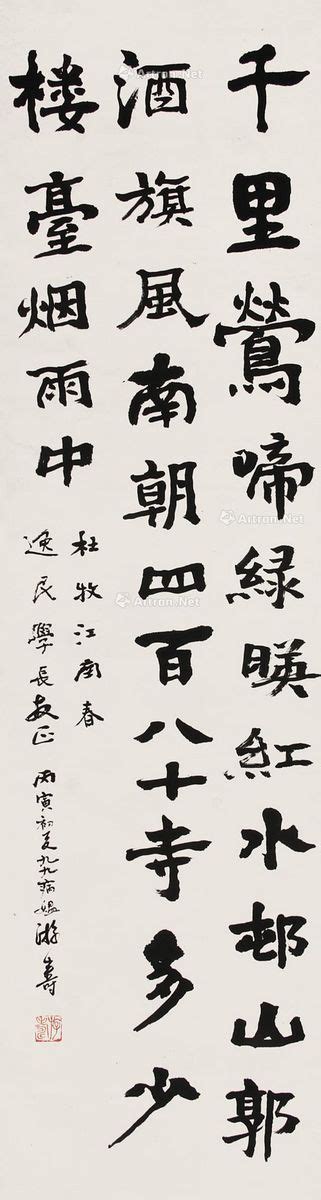 千里鶯啼緑暎紅水邨山郭
酒旗風南朝四百八十寺多少
楼臺烟雨中
杜牧江南春
逸民學長教正 丙寅初夏九九病媪游壽
Artron.Net
Artron.Net
Artron.Net
Artron.Net